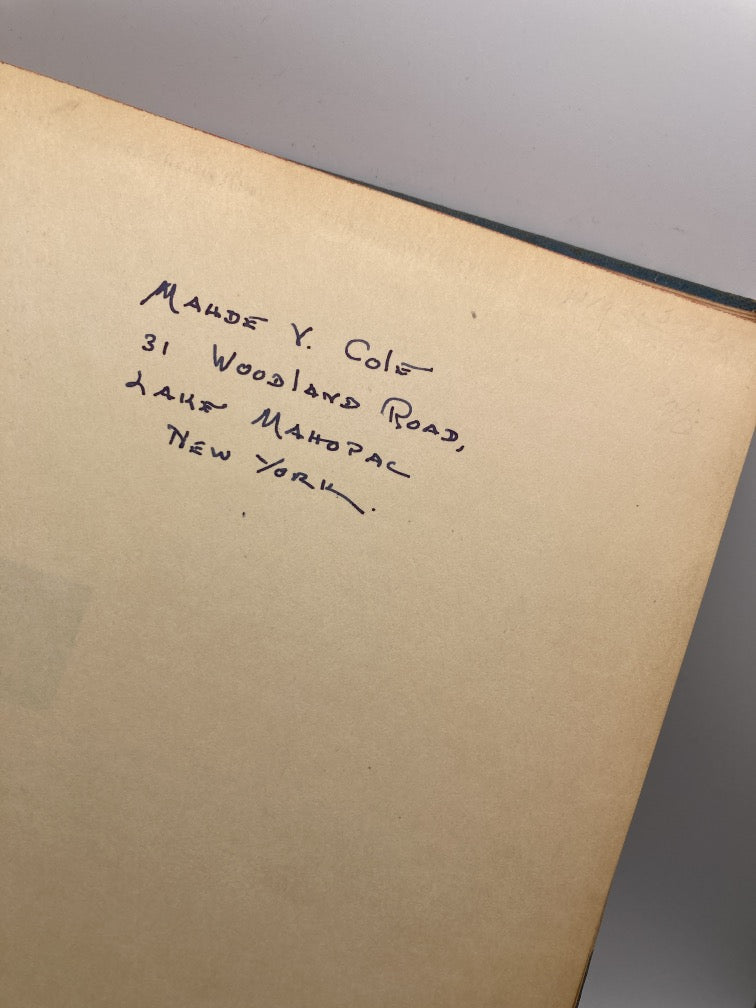 Maude V. Cole
31 Woodland Road,
Lake Mahopac
New York.